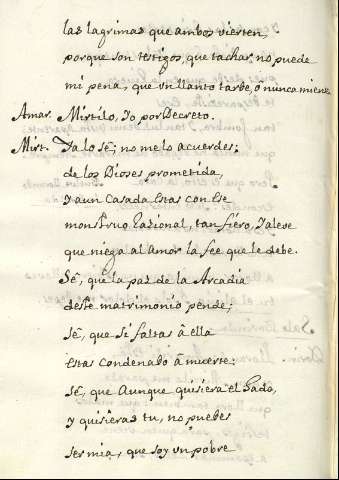 las lagrimas que ambos vierten,
porque son testigos, que tachar, no puede
mi pena, que vn llanto tarde, ò nunca miente
Amar. Mirtilo, Yo, por Decreto.
Mirt. Ya lo sè; no me lo acuerdes;
de los Dioses prometida,
Y aun Casada Estas con Ese
monstruo Razional, tan fiero, Y aleve
que niega al Amor la fee que le debe.
Sè, que la paz de la Arcadia
deste matrimonio pende;
Sè, que si faltas à èlla
Estas Condenada à muerte:
Sè, que Aunque quisiera el Hado,
y quisieras tu, no puedes
ser mia, que soy vn pobre